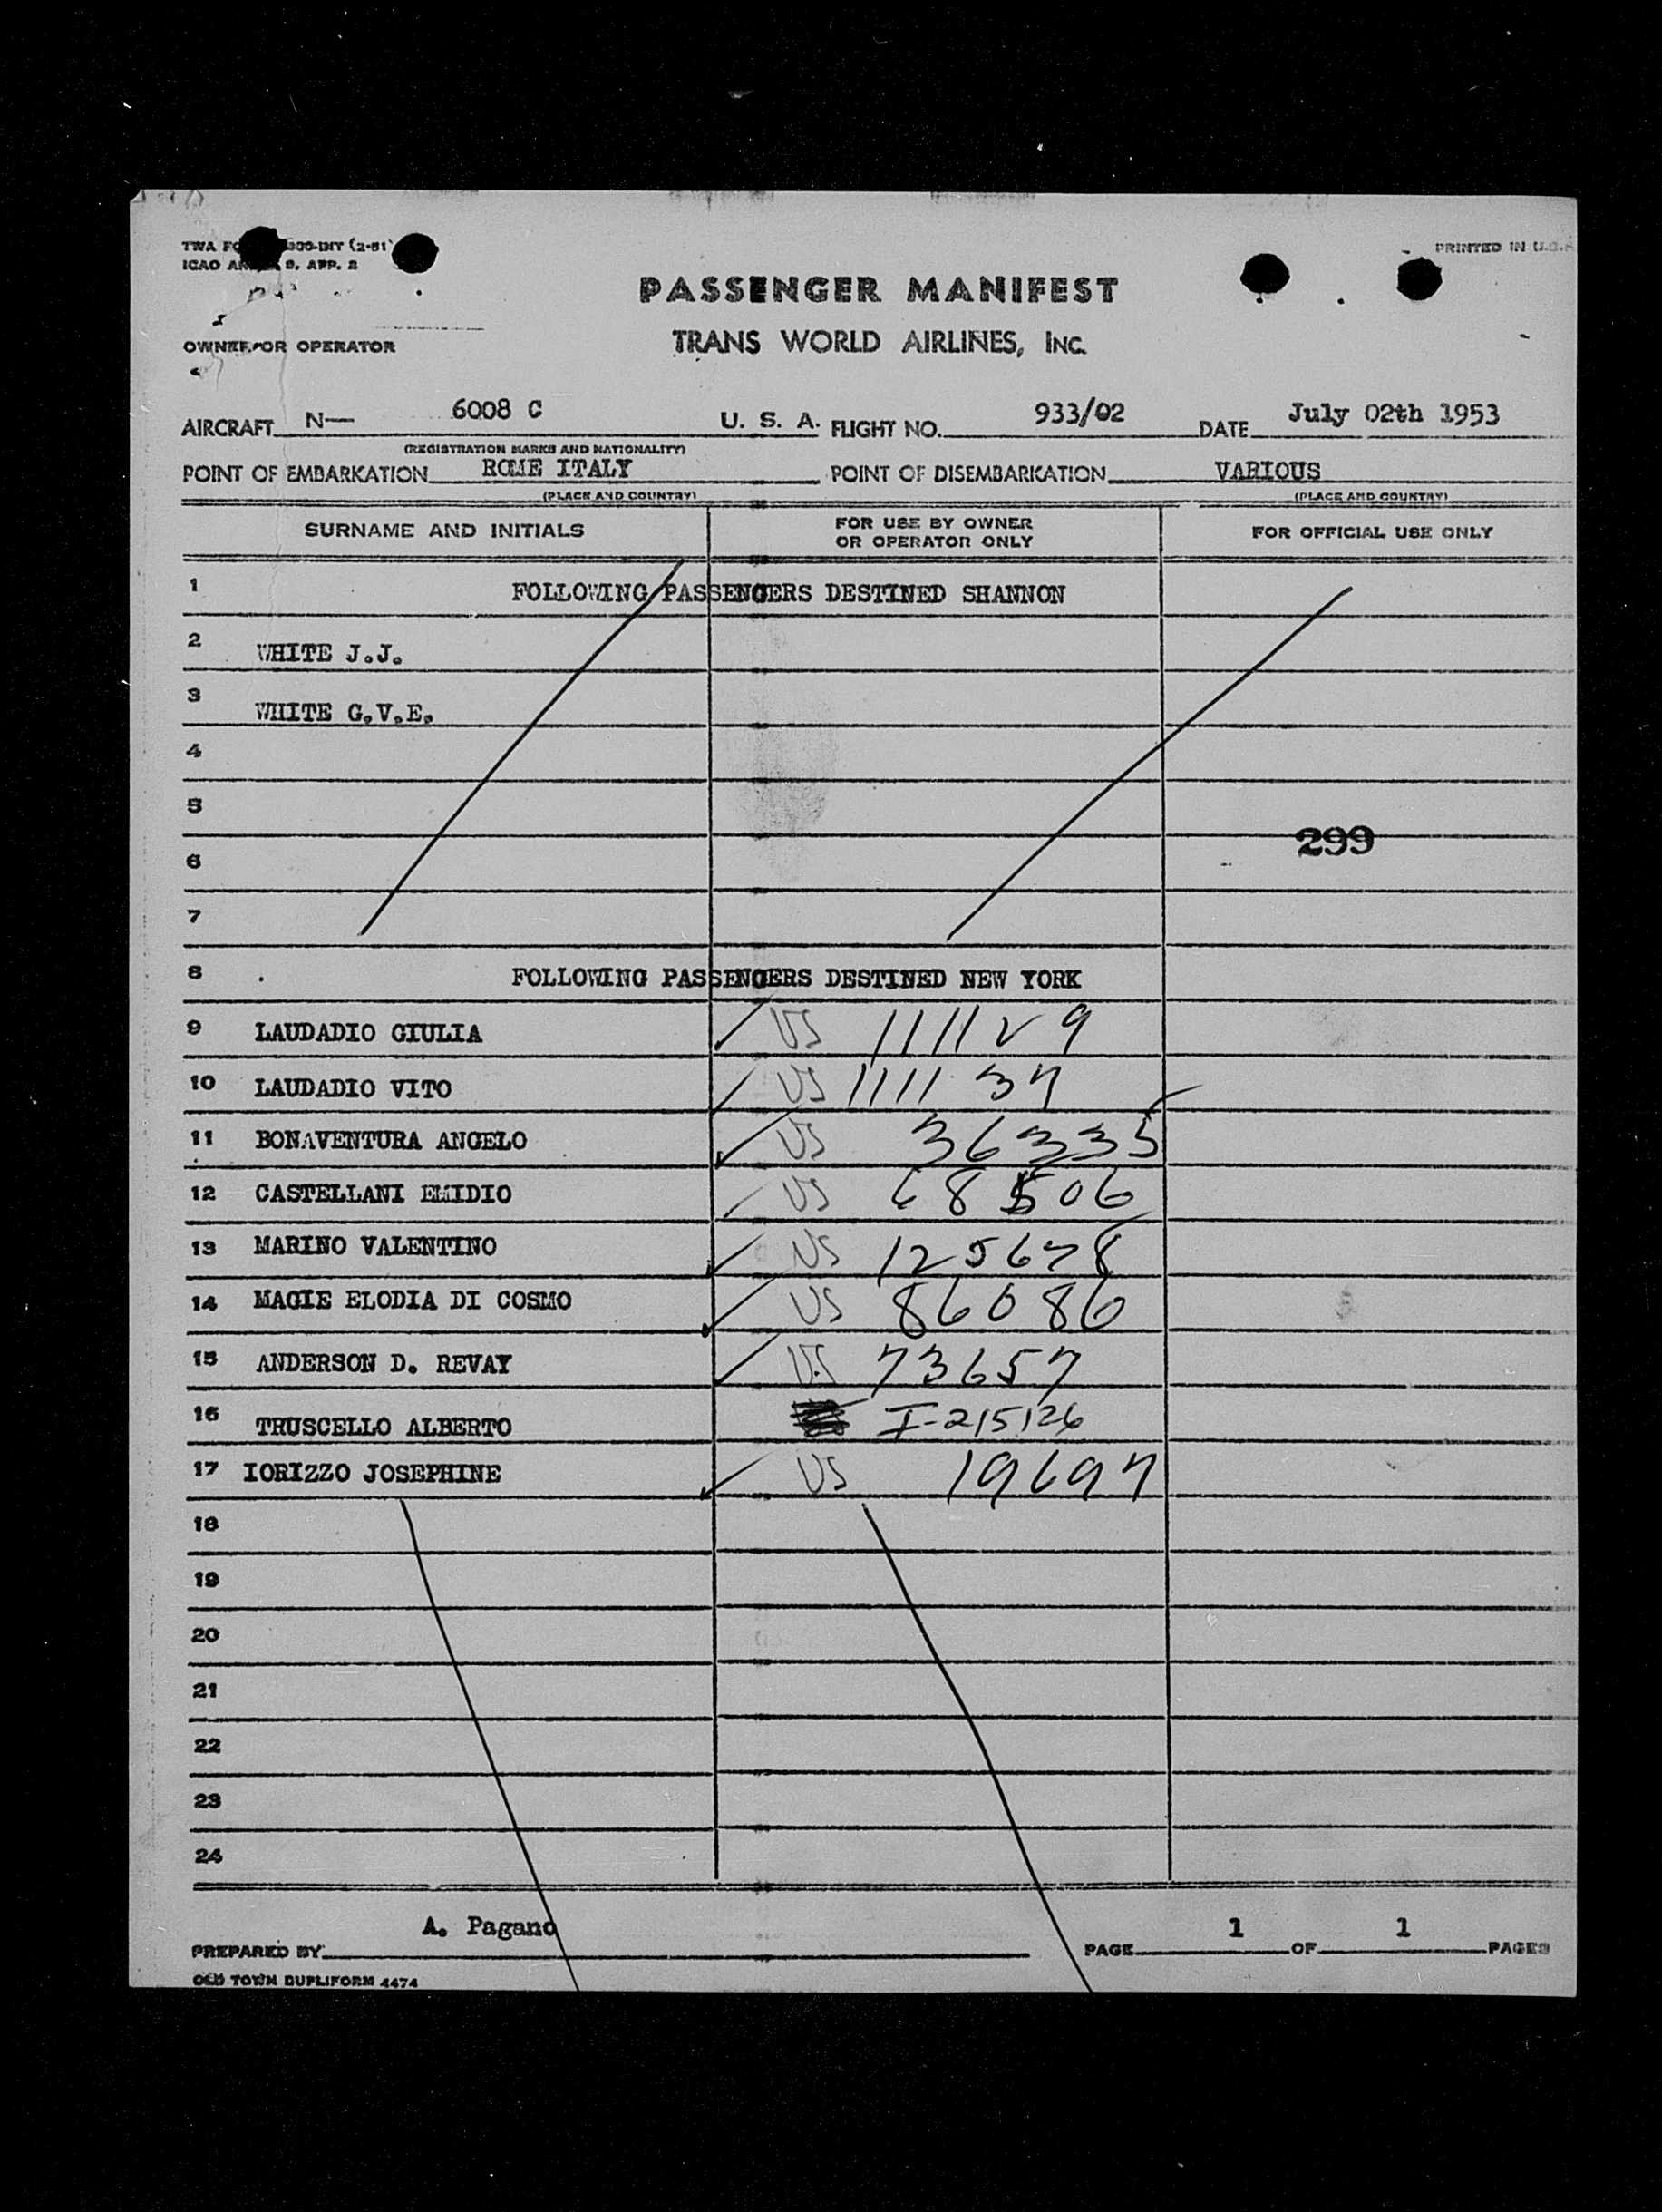 PRINTED IN U.S.A
ICAO
PASSENGER MANIFEST
OWNER OR OPERATOR
TRANS WORLD AIRLINES, INC.
AIRCRAFT N— 6008 C U. S. A. FLIGHT NO. 933/02 DATE July 02th 1953
(REGISTRATION MARKS AND NATIONALITY)
POINT OF EMBARKATION ROME ITALY POINT OF DISEMBARKATION VARIOUS
(PLACE AND COUNTRY) (PLACE AND COUNTRY)
SURNAME AND INITIALS FOR USE BY OWNER OR OPERATOR ONLY FOR OFFICIAL USE ONLY
1 FOLLOWING PASSENGERS DESTINED SHANNON
2 WHITE J.J.
3 WHITE G.V.E.
4
5
299
6
7
8 FOLLOWING PASSENGERS DESTINED NEW YORK
9 LAUDADIO GIULIA US 111129
10 LAUDADIO VITO US 111137
11 BONAVENTURA ANGELO US 36335
12 CASTELLANI EMIDIO US 68506
13 MARINO VALENTINO US 125678
14 MAGIE ELODIA DI COSMO US 86086
15 ANDERSON D. REVAY US 73657
16 TRUSCELLO ALBERTO I-215126
17 IORIZZO JOSEPHINE US 19697
18
19
20
21
22
23
24
PREPARED BY A. Pagano PAGE 1 OF 1 PAGES
OLD TOWN DUPLIFORM 4474